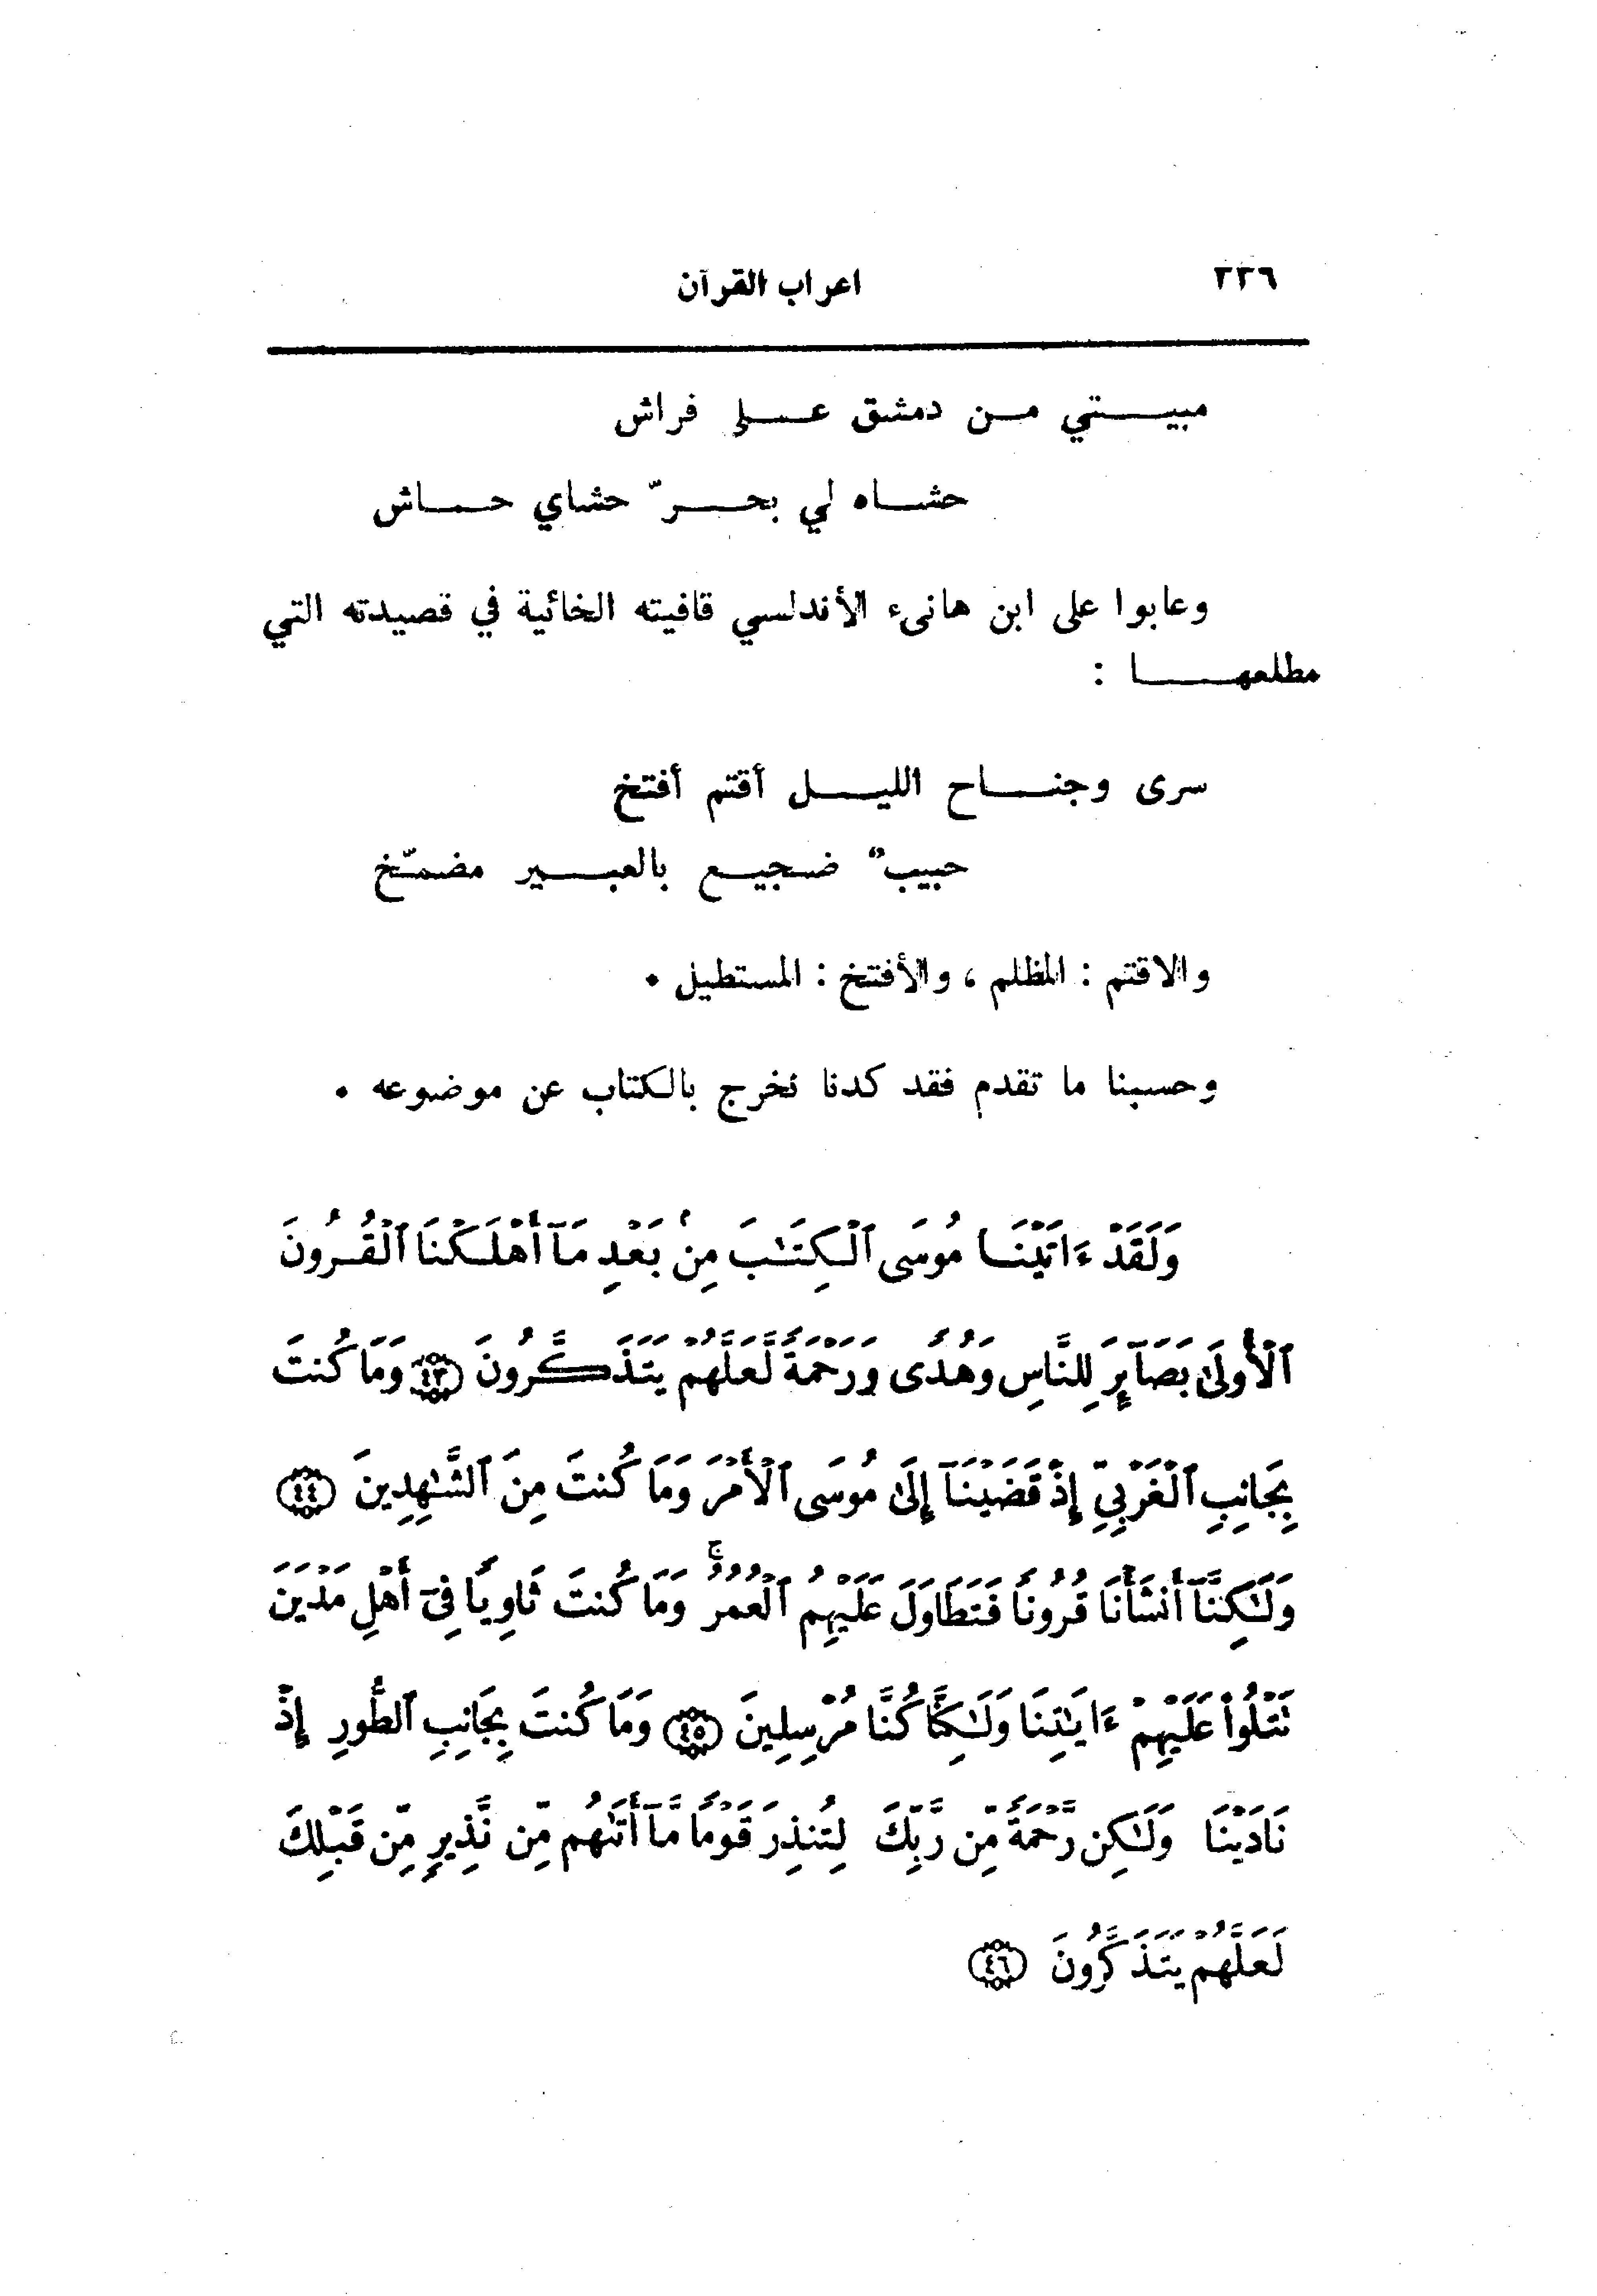 ٣٣٦
اعراب القرآن
مبيتي من دمشق على فراش
حشاه لي بحرّ حشاي حاش
وعابوا على ابن هانىء الأندلسي قافيته الخائية في قصيدته التي
مطلعها :
سرى وجناح الليل أقتم أفتخ
حبيب ضجيع بالعبير مضمّخ
والاقتم : المظلم ، والأفتخ : المستطيل .
وحسبنا ما تقدم فقد كدنا نخرج بالكتاب عن موضوعه .
وَلَقَدْ ءَاتَيْنَا مُوسَى ٱلْكِتَـٰبَ مِنۢ بَعْدِ مَآ أَهْلَكْنَا ٱلْقُرُونَ
ٱلْأُولَىٰ بَصَآئِرَ لِلنَّاسِ وَهُدًى وَرَحْمَةً لَّعَلَّهُمْ يَتَذَكَّرُونَ ﴿٤٣﴾ وَمَا كُنتَ
بِجَانِبِ ٱلْغَرْبِيِّ إِذْ قَضَيْنَآ إِلَىٰ مُوسَى ٱلْأَمْرَ وَمَا كُنتَ مِنَ ٱلشَّـٰهِدِينَ ﴿٤٤﴾
وَلَـٰكِنَّآ أَنشَأْنَا قُرُونًا فَتَطَاوَلَ عَلَيْهِمُ ٱلْعُمُرُ ۚ وَمَا كُنتَ ثَاوِيًا فِىٓ أَهْلِ مَدْيَنَ
تَتْلُوا۟ عَلَيْهِمْ ءَايَـٰتِنَا وَلَـٰكِنَّا كُنَّا مُرْسِلِينَ ﴿٤٥﴾ وَمَا كُنتَ بِجَانِبِ ٱلطُّورِ إِذْ
نَادَيْنَا وَلَـٰكِن رَّحْمَةً مِّن رَّبِّكَ لِتُنذِرَ قَوْمًا مَّآ أَتَىٰهُم مِّن نَّذِيرٍ مِّن قَبْلِكَ
لَعَلَّهُمْ يَتَذَكَّرُونَ ﴿٤٦﴾